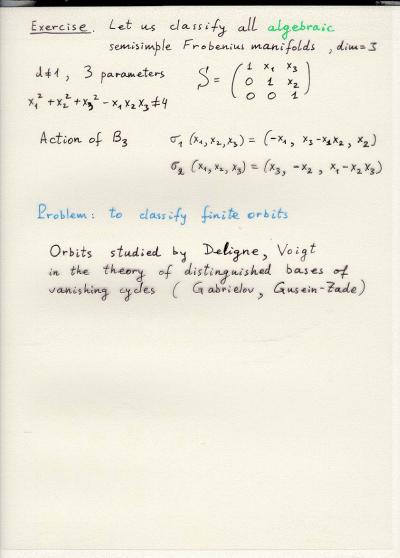 Exercise. Let us classify all algebraic
semisimple Frobenius manifolds, dim=3
d≠1, 3 parameters S = ( 1 x₁ x₃
0 1 x₂
0 0 1 )
x₁² + x₂² + x₃² - x₁x₂x₃ ≠ 4
Action of B₃ σ₁ (x₁, x₂, x₃) = (-x₁, x₃-x₁x₂, x₂)
σ₂ (x₁, x₂, x₃) = (x₃, -x₂, x₁-x₂x₃)
Problem: to classify finite orbits
Orbits studied by Deligne, Voigt
in the theory of distinguished bases of
vanishing cycles (Gabrielov, Gusein-Zade)